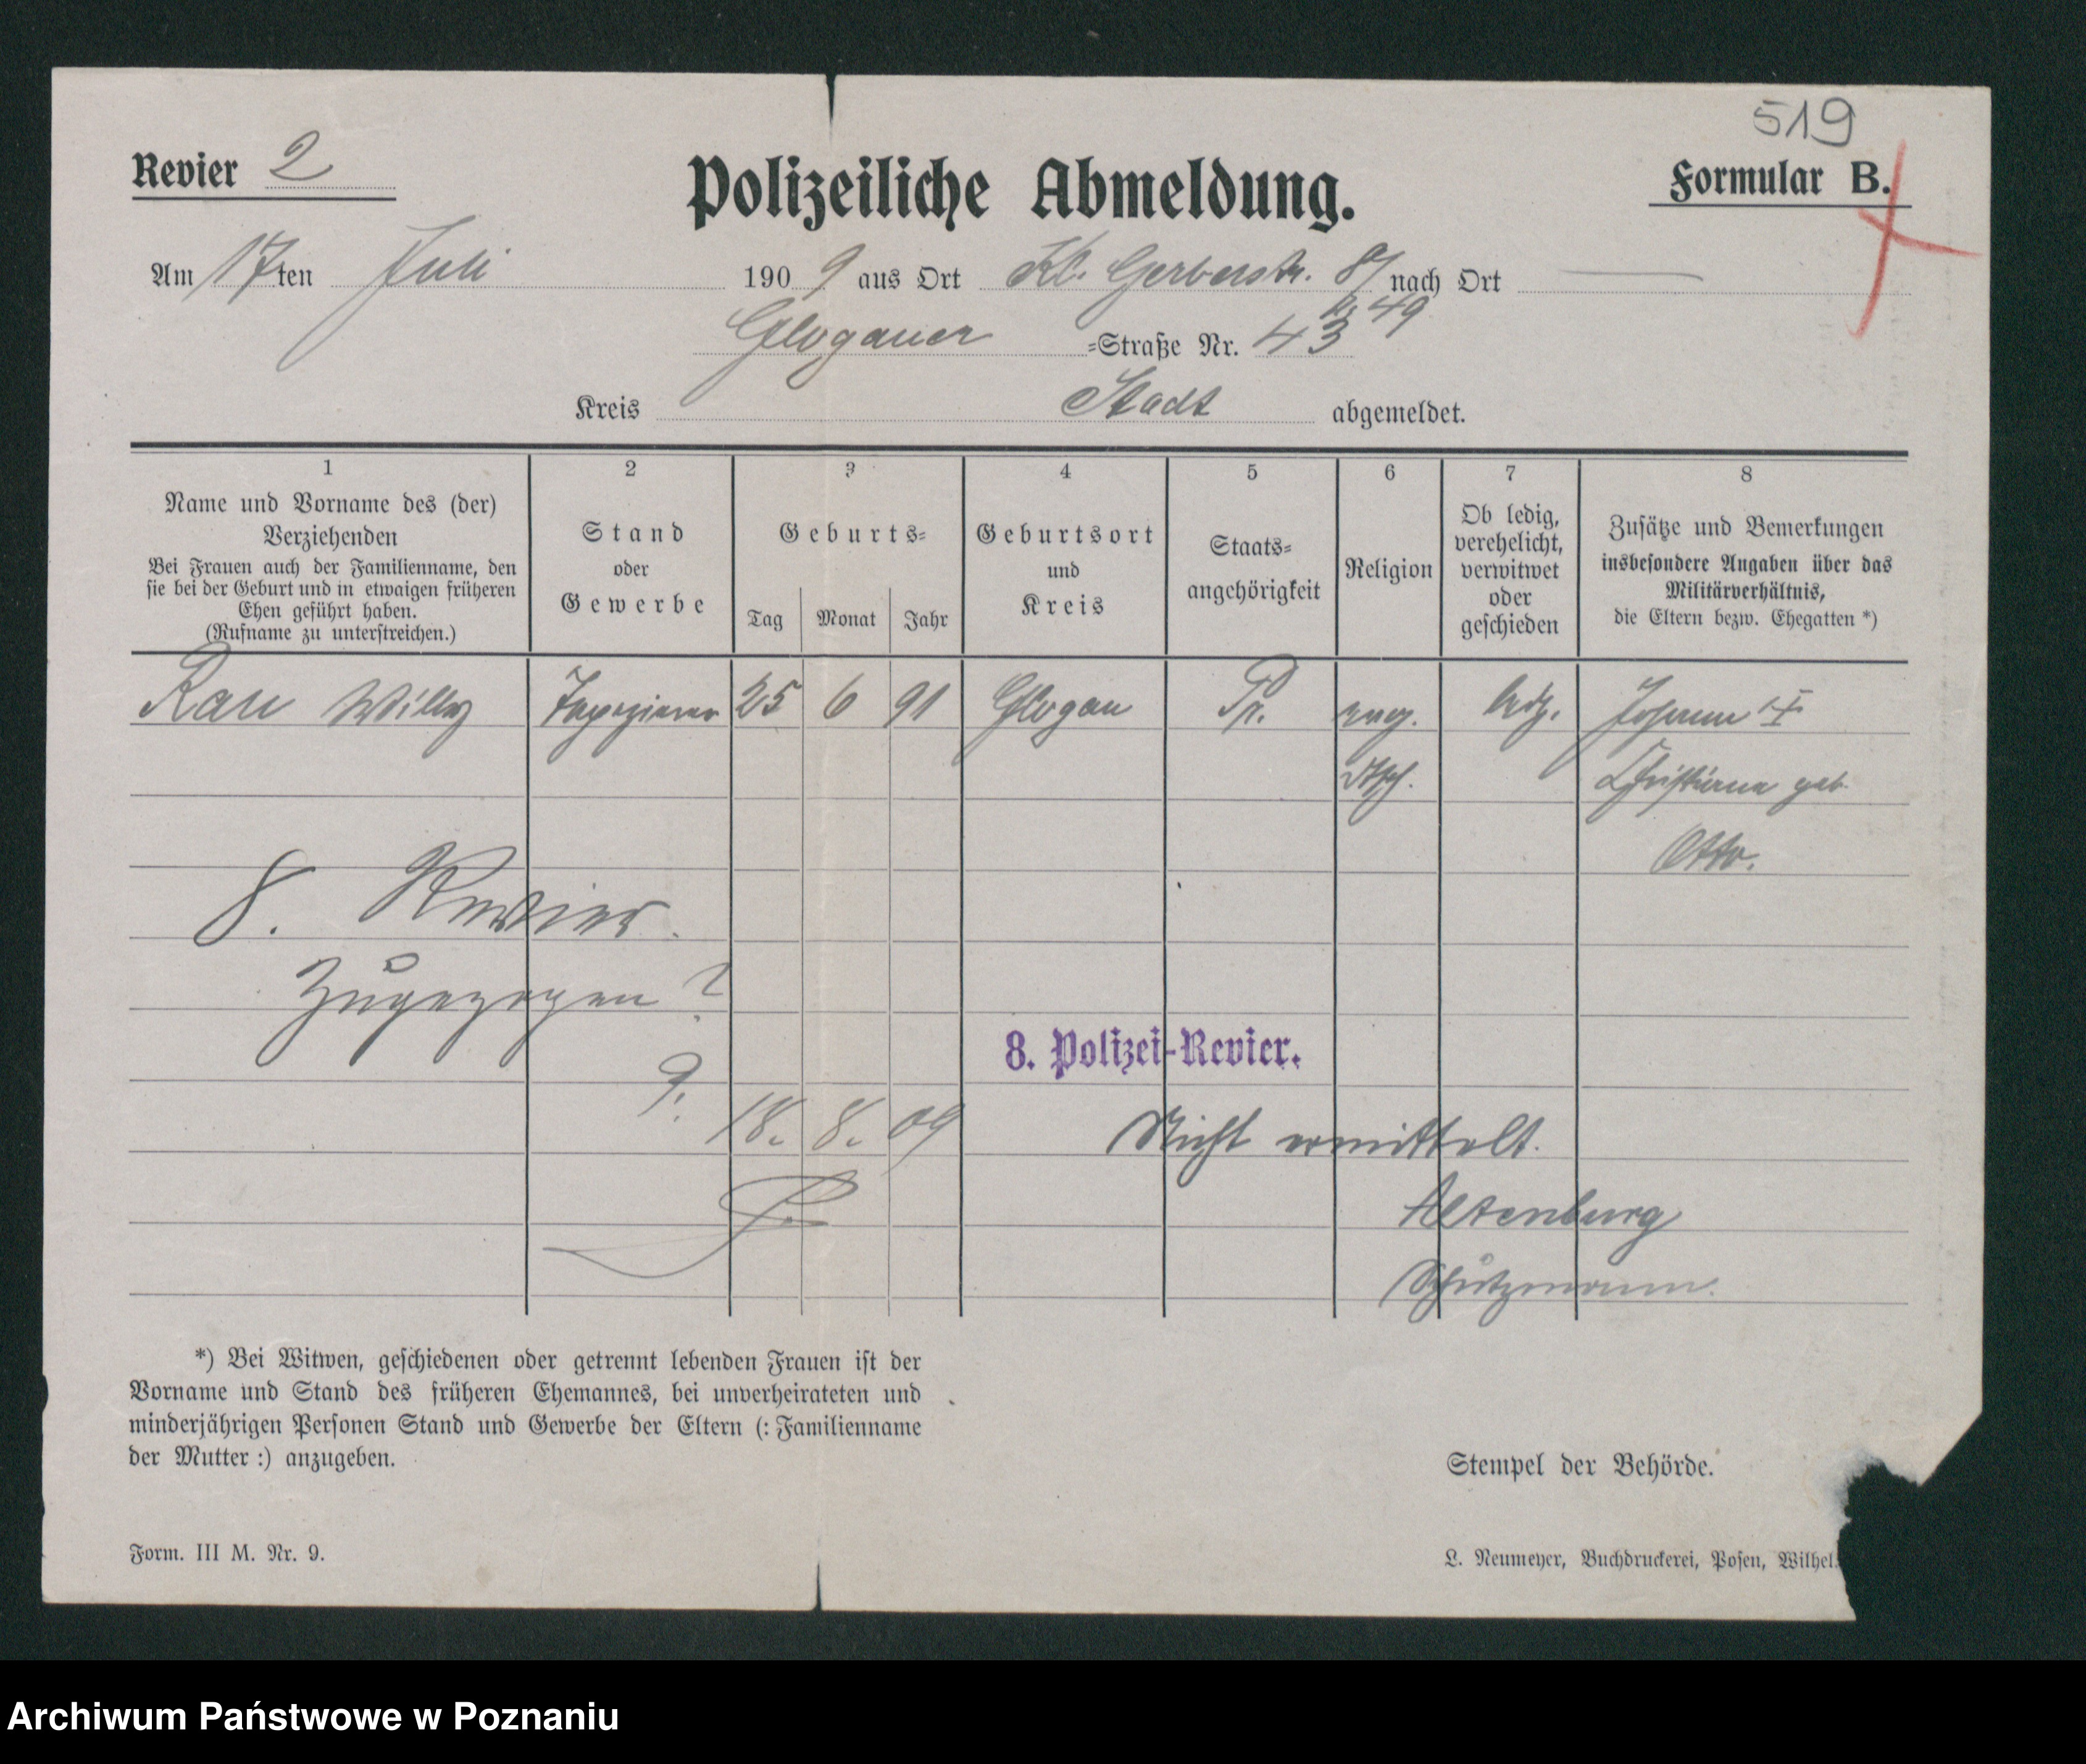 519
Revier 2
Polizeiliche Abmeldung.
Formular B.
Am 17ten Juli 1909 aus Ort Kl. Gerberstr. 8/ nach Ort —
49
Glogauer -Straße Nr. 43
Kreis Stadt abgemeldet.
1 2 3 4 5 6 7 8
Name und Vorname des (der)
Verziehenden
Bei Frauen auch der Familienname, den
sie bei der Geburt und in etwaigen früheren
Ehen geführt haben.
(Rufname zu unterstreichen.)
Stand
oder
Gewerbe
Geburts-
Tag Monat Jahr
Geburtsort
und
Kreis
Staats-
angehörigkeit
Religion
Ob ledig,
verehelicht,
verwitwet
oder
geschieden
Zusätze und Bemerkungen
insbesondere Angaben über das
Militärverhältnis,
die Eltern bezw. Ehegatten *)
Rau Willy Tapezierer 25 6 91 Glogau Pr. evg. ledg. Johann †
Christiana geb.
Otto.
8. Revier.
Zugezogen?
8. Polizei-Revier.
9. 18. 8. 09
Nicht ermittelt.
Altenburg
Schutzmann.
*) Bei Witwen, geschiedenen oder getrennt lebenden Frauen ist der
Vorname und Stand des früheren Ehemannes, bei unverheirateten und
minderjährigen Personen Stand und Gewerbe der Eltern (: Familienname
der Mutter :) anzugeben.
Stempel der Behörde.
Form. III M. Nr. 9.
L. Neumeyer, Buchdruckerei, Posen, Wilhel
Archiwum Państwowe w Poznaniu